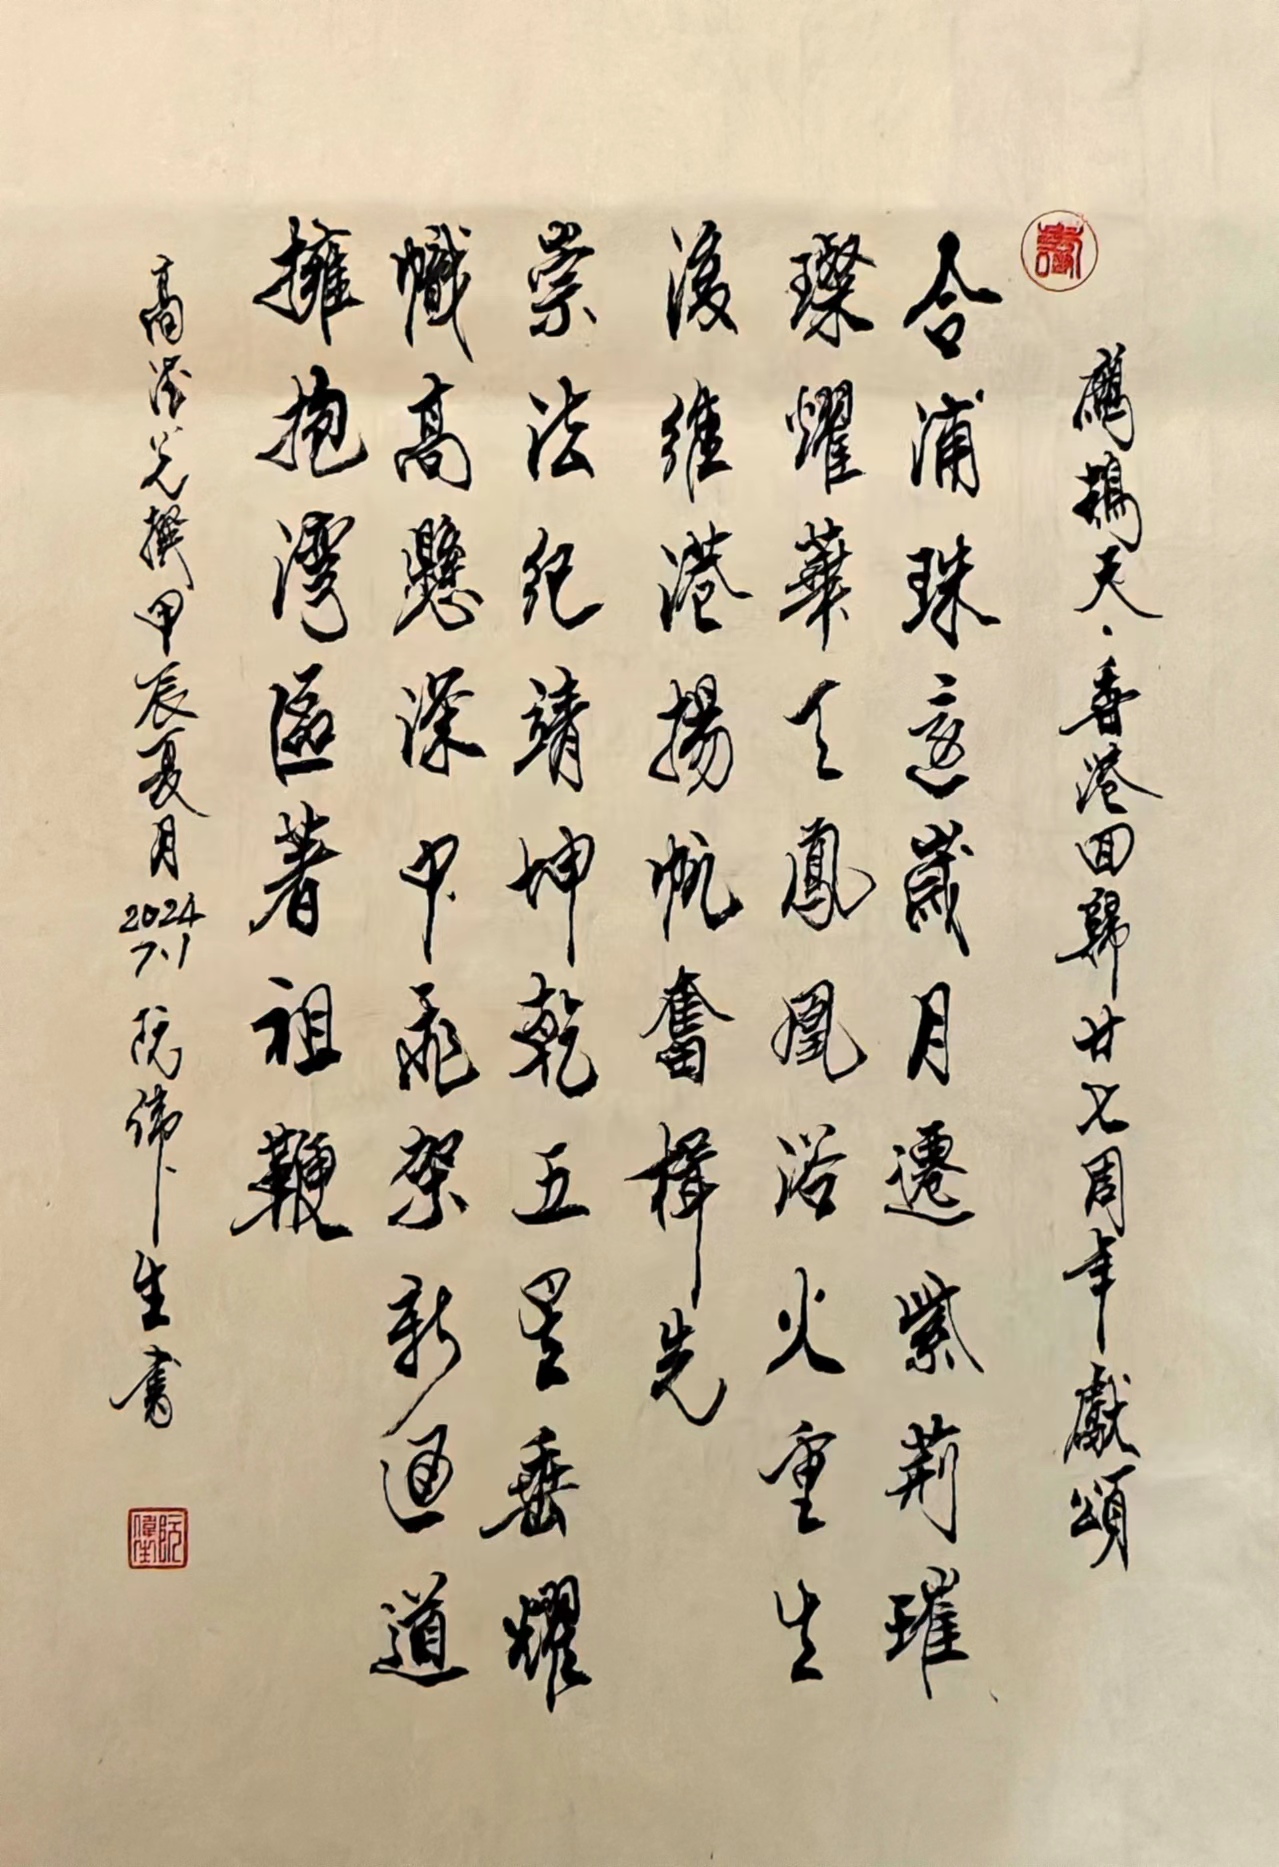 鷓鴣天·香港回歸廿七周年獻頌
合浦珠還歲月遷紫荊璀
璨耀華天鳳凰浴火重生
後維港揚帆奮楫先
崇法紀靖坤乾五星垂耀
幟高懸深中飛架新通道
擁抱灣區著祖鞭
高光撰甲辰夏月
2024
7.1
阮偉生書
阮偉生